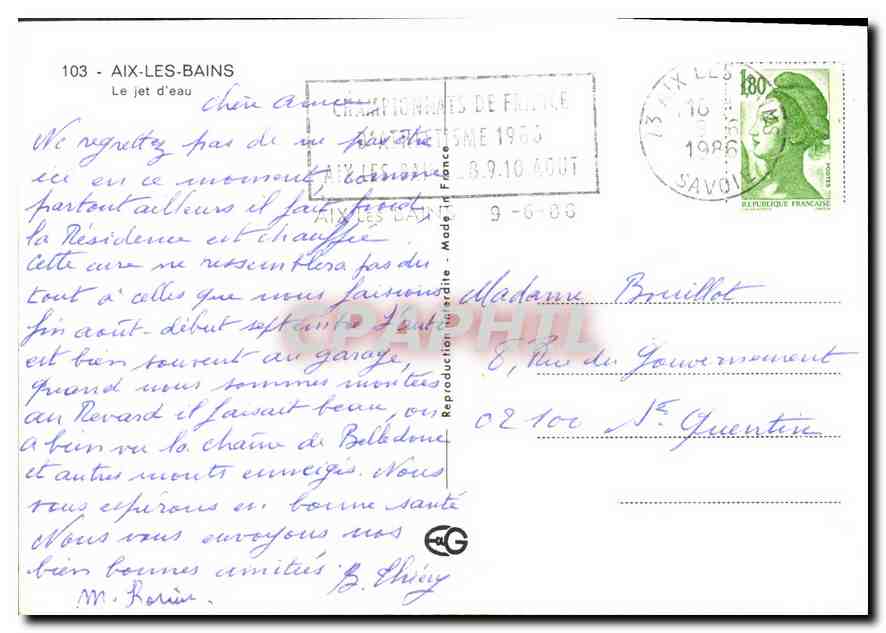 103 - AIX-LES-BAINS
Le jet d'eau
Chère amie
Ne regrettez pas de ne pas être
ici en ce moment, comme
partout ailleurs il fait froid
la Résidence est chauffée.
Cette cure ne ressemblera pas du
tout à celles que nous faisions
fin août - début septembre l'auto
est bien souvent au garage,
quand nous sommes montées
au Revard il faisait beau, on
a bien vu la chaîne de Belledone
et autres monts enneigés. Nous
vous espérons en bonne santé
Nous vous envoyons nos
bien bonnes amitiés. B. Thiéry
M.
CHAMPIONNATS DE FRANCE
D'ATHLETISME 1986
AIX-LES-BAINS 8.9.10 AOUT
AIX LES BAINS 9-6-86
73 AIX LES BAINS
10
1986
SAVOIE
1,80
POSTES
REPUBLIQUE FRANÇAISE
Reproduction interdite - Made in France
CPAPHIL
Madame Bouillot
8, Rue du Gouvernement
02100 St Quentin